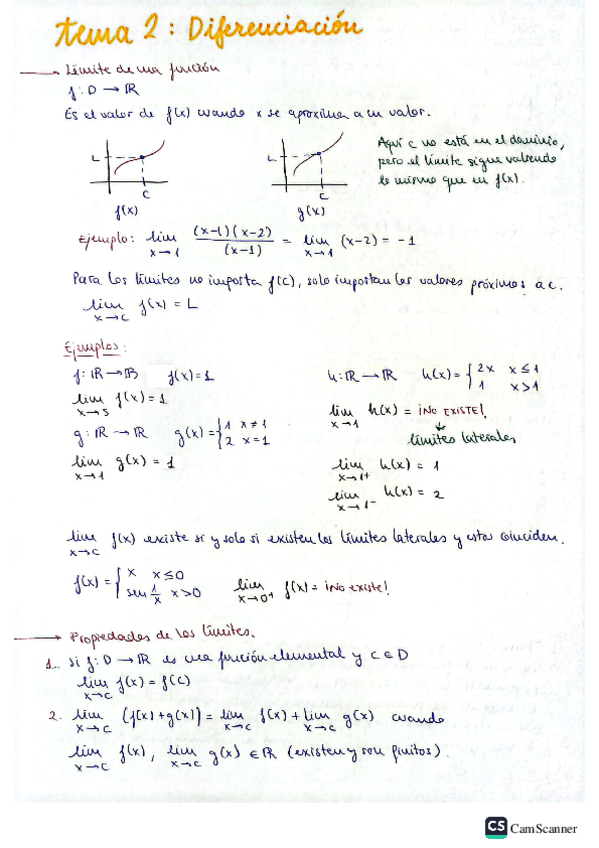 tema 2: Diferenciación
→ Límite de una función
f: D → ℝ
Es el valor de f(x) cuando x se aproxima a un valor.
L
C
f(x)
L
C
g(x)
Aquí c no está en el dominio,
pero el límite sigue valiendo
lo mismo que en f(x).
Ejemplo: lim x→1 (x-1)(x-2)/(x-1) = lim x→1 (x-2) = -1
Para los límites no importa f(c), solo importan los valores próximos a c.
lim x→c f(x) = L
Ejemplos:
f: ℝ → ℝ f(x)=1
lim x→5 f(x)=1
g: ℝ → ℝ g(x)={ 1 x≠1
2 x=1
lim x→1 g(x) = 1
h: ℝ → ℝ h(x)={ 2x x≤1
1 x>1
lim x→1 h(x) = ¡NO EXISTE!
↓
límites laterales
lim x→1+ h(x) = 1
lim x→1- h(x) = 2
lim x→c f(x) existe si y solo si existen los límites laterales y estos coinciden.
f(x)={ x x≤0
sen 1/x x>0
lim x→0+ f(x)= ¡No existe!
→ Propiedades de los límites.
1.. Si f: D → ℝ es una función elemental y c∈D
lim x→c f(x) = f(c)
2. lim x→c (f(x)+g(x)) = lim x→c f(x) + lim x→c g(x) cuando
lim x→c f(x), lim x→c g(x) ∈ ℝ (existen y son finitos).
CS CamScanner